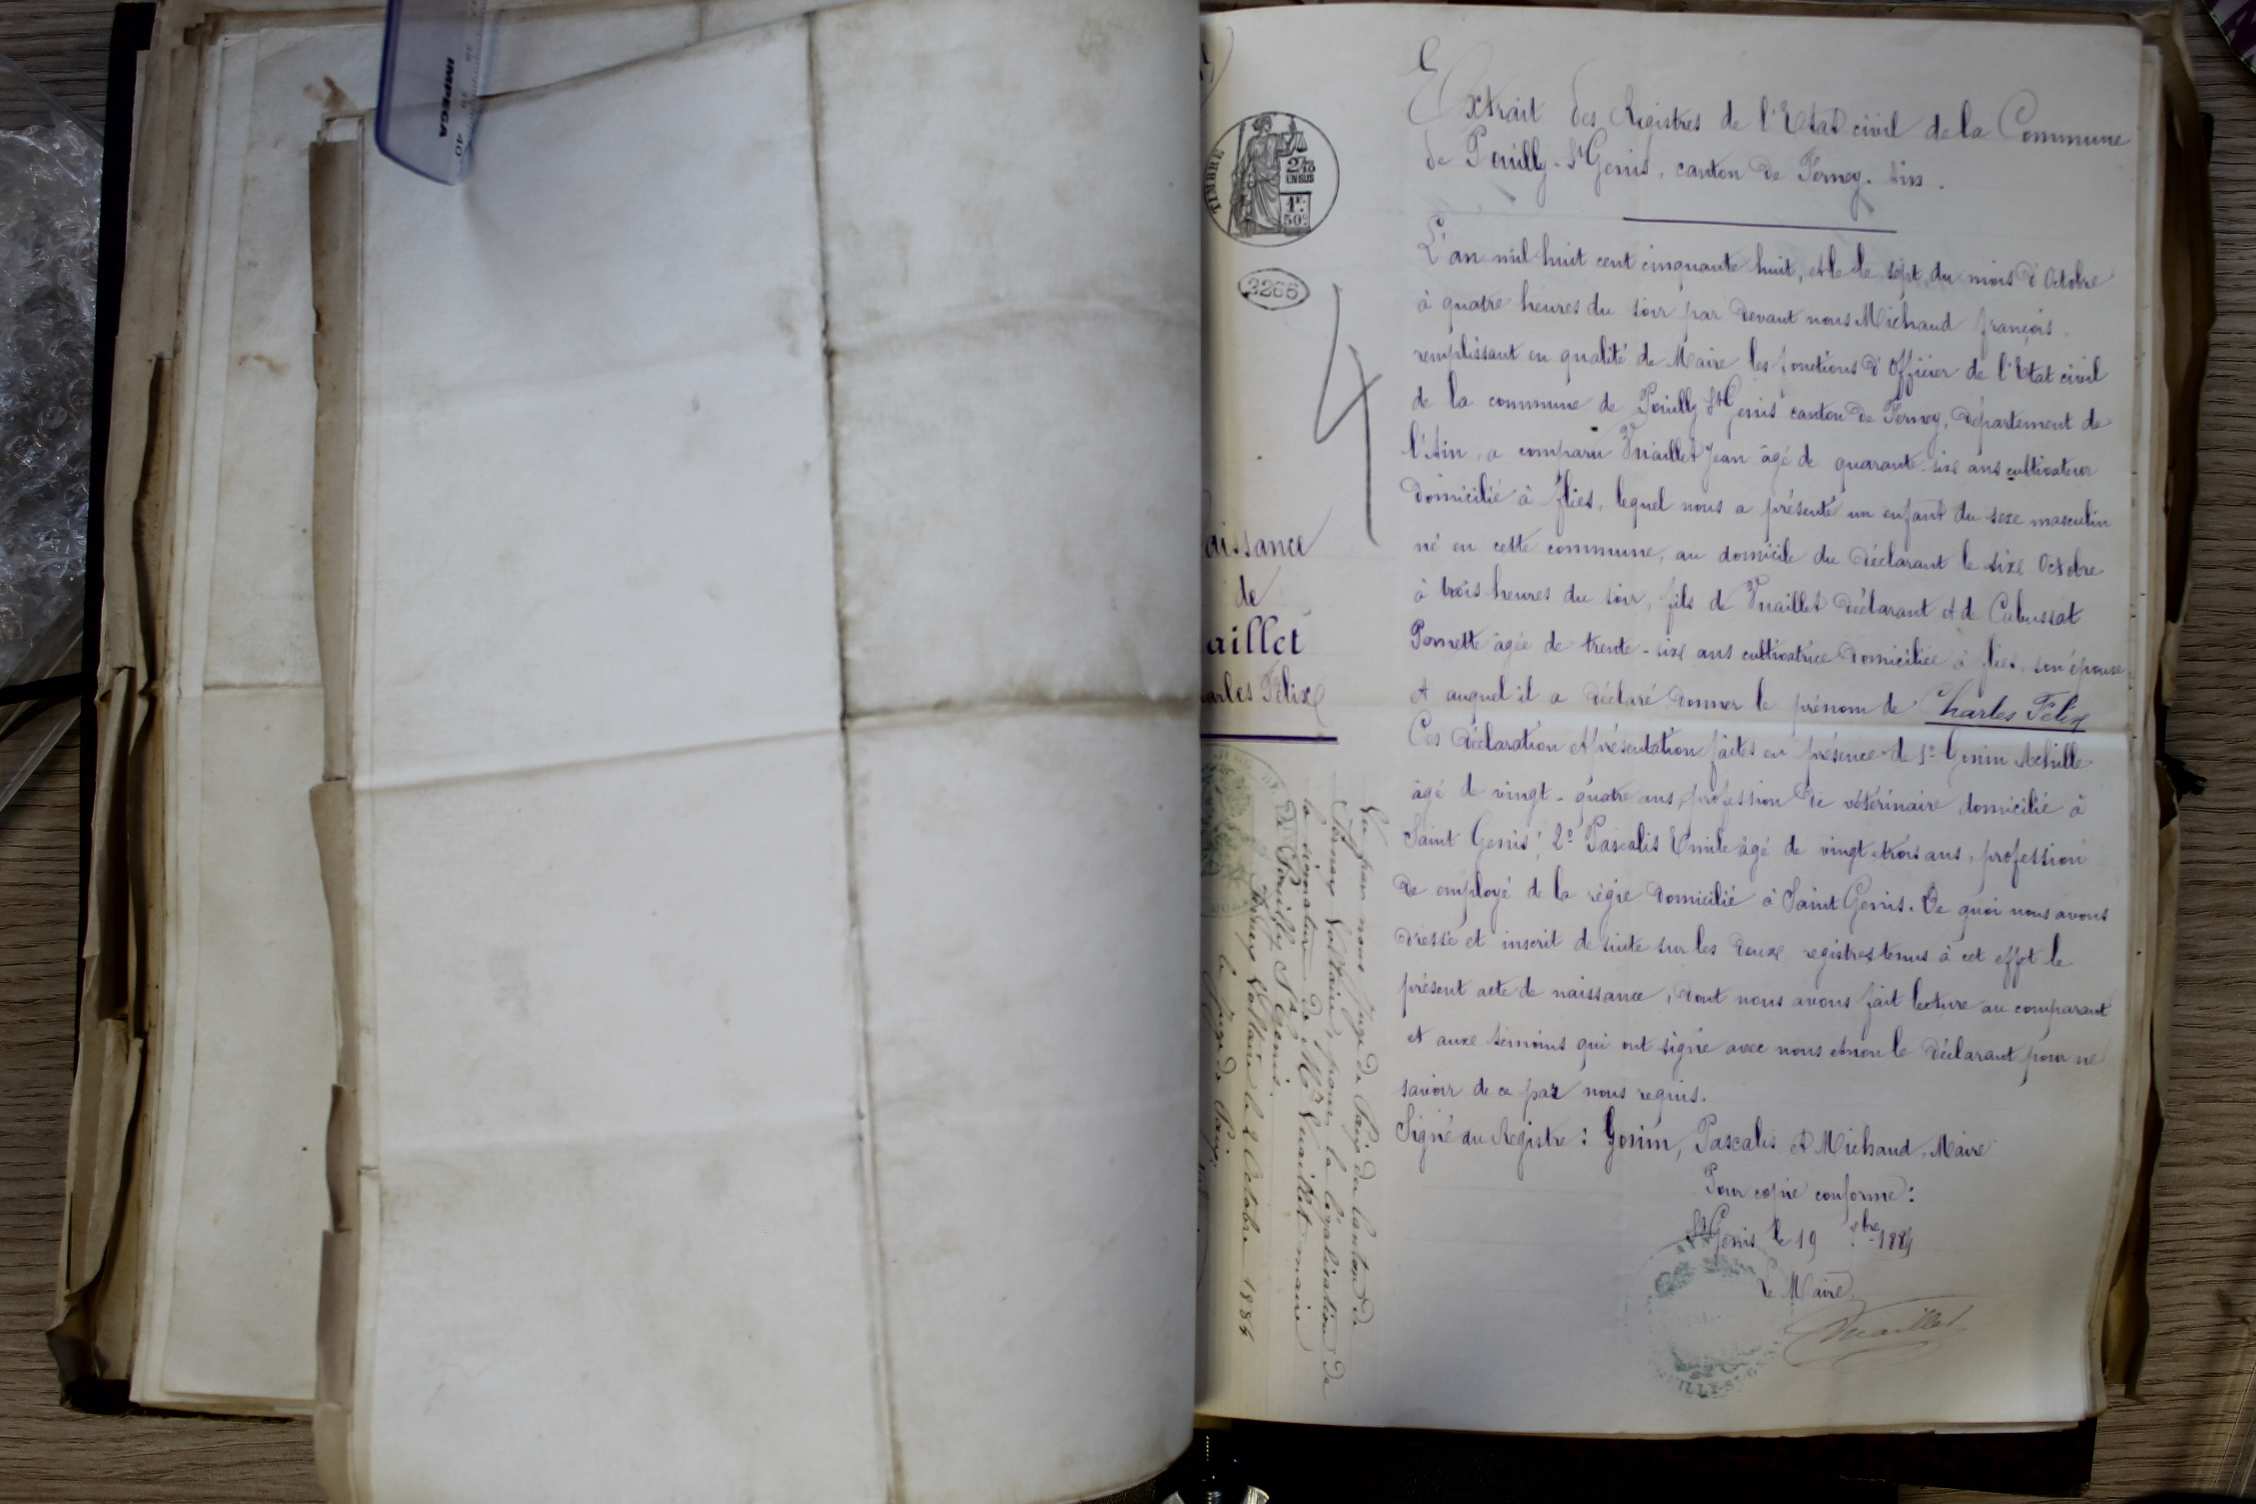 IMPEGA
40
TIMBRE
2/10
EN SUS
1F.
50c.
3266
4
aissance
de
aillet
arles Félix
Vu par nous juge de Paix du Canton de
Fernex Voltaire, pour la légalisation de
la signature de Mr. Vuaillet maire
de Pouilly St Genis.
Fernex Voltaire le 2 Octobre 1884
le juge de Paix
Extrait des Registres de l'Etat civil de la Commune
de Pouilly-St Genis, canton de Ferney. Ain.
L'an mil huit cent cinquante huit, et le sept du mois d'Octobre
à quatre heures du soir par devant nous Michaud françois
remplissant en qualité de Maire les fonctions d'officier de l'Etat civil
de la commune de Pouilly St Genis canton de Ferney, département de
l'Ain, a comparu Vuaillet Jean âgé de quarante-six ans cultivateur
domicilié à flies, lequel nous a présenté un enfant du sexe masculin
né en cette commune, au domicile du déclarant le six Octobre
à trois heures du soir, fils de Vuaillet déclarant et de Cabussat
Pernette âgée de trente-six ans cultivatrice domiciliée à flies, son épouse
et auquel il a déclaré donner le prénom de Charles Félix
Ces déclaration et présentation faites en présence de 1º Gonin Achille
âgé de vingt-quatre ans, profession de vétérinaire domicilié à
Saint Genis; 2º Pascalis Emile âgé de vingt-trois ans, profession
de employé de la régie domicilié à Saint Genis. De quoi nous avons
dressé et inscrit de suite sur les deux registres tenus à cet effet le
présent acte de naissance, dont nous avons fait lecture au comparant
et aux témoins qui ont signé avec nous et non le déclarant pour ne
savoir de ce par nous requis.
Signé du Registre: Gonin, Pascalis et Michaud, Maire
Pour copie conforme:
St Genis le 19 1884
Le Maire
Vuaillet